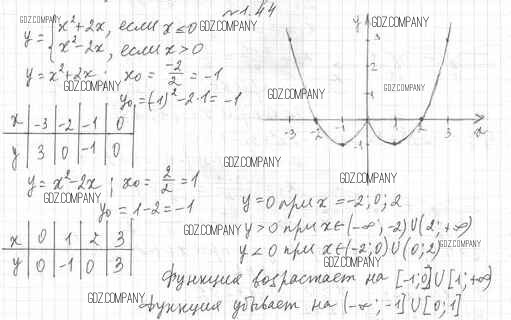 №1.44
y = { x²+2x, если x ≤ 0
x²-2x, если x > 0
y = x²+2x ; x₀ = -2/2 = -1
y₀ = (-1)²-2·1 = -1
x | -3 | -2 | -1 | 0
y | 3 | 0 | -1 | 0
y = x²-2x ; x₀ = 2/2 = 1
y₀ = 1-2 = -1
x | 0 | 1 | 2 | 3
y | 0 | -1 | 0 | 3
y
3
2
1
-3 -2 -1 1 2 3 x
-1
y = 0 при x = -2; 0; 2
y > 0 при x ∈ (-∞; -2) ∪ (2; +∞)
y < 0 при x ∈ (-2; 0) ∪ (0; 2)
Функция возрастает на [-1; 0] ∪ [1; +∞)
Функция убывает на (-∞; -1] ∪ [0; 1]
GDZ.COMPANY
GDZ.COMPANY
GDZ.COMPANY
GDZ.COMPANY
GDZ.COMPANY
GDZ.COMPANY
GDZ.COMPANY
GDZ.COMPANY
GDZ.COMPANY
GDZ.COMPANY
GDZ.COMPANY
GDZ.COMPANY
GDZ.COMPANY